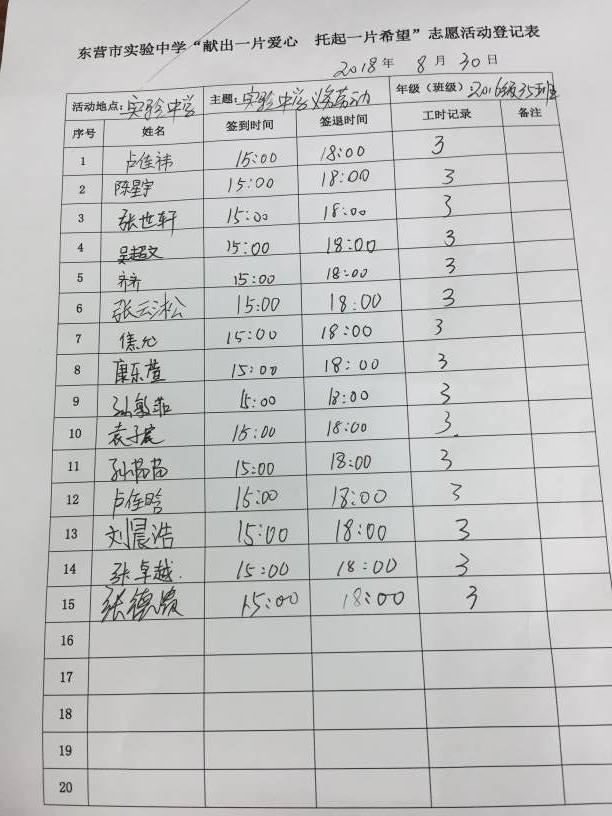 东营市实验中学“献出一片爱心 托起一片希望”志愿活动登记表
2018年 8月 30日
活动地点：实验中学 主题：实验中学义务劳动 年级（班级）：2016级35班
序号 姓名 签到时间 签退时间 工时记录 备注
1 卢佳祎 15:00 18:00 3
2 陈星宇 15:00 18:00 3
3 张世轩 15:00 18:00 3
4 吴超文 15:00 18:00 3
5 齐齐 15:00 18:00 3
6 张云淞 15:00 18:00 3
7 焦允 15:00 18:00 3
8 康乐萱 15:00 18:00 3
9 孙敏菲 15:00 18:00 3
10 袁子宸 15:00 18:00 3
11 孙 15:00 18:00 3
12 卢佳晗 15:00 18:00 3
13 刘晨浩 15:00 18:00 3
14 张卓越 15:00 18:00 3
15 张德 15:00 18:00 3
16
17
18
19
20